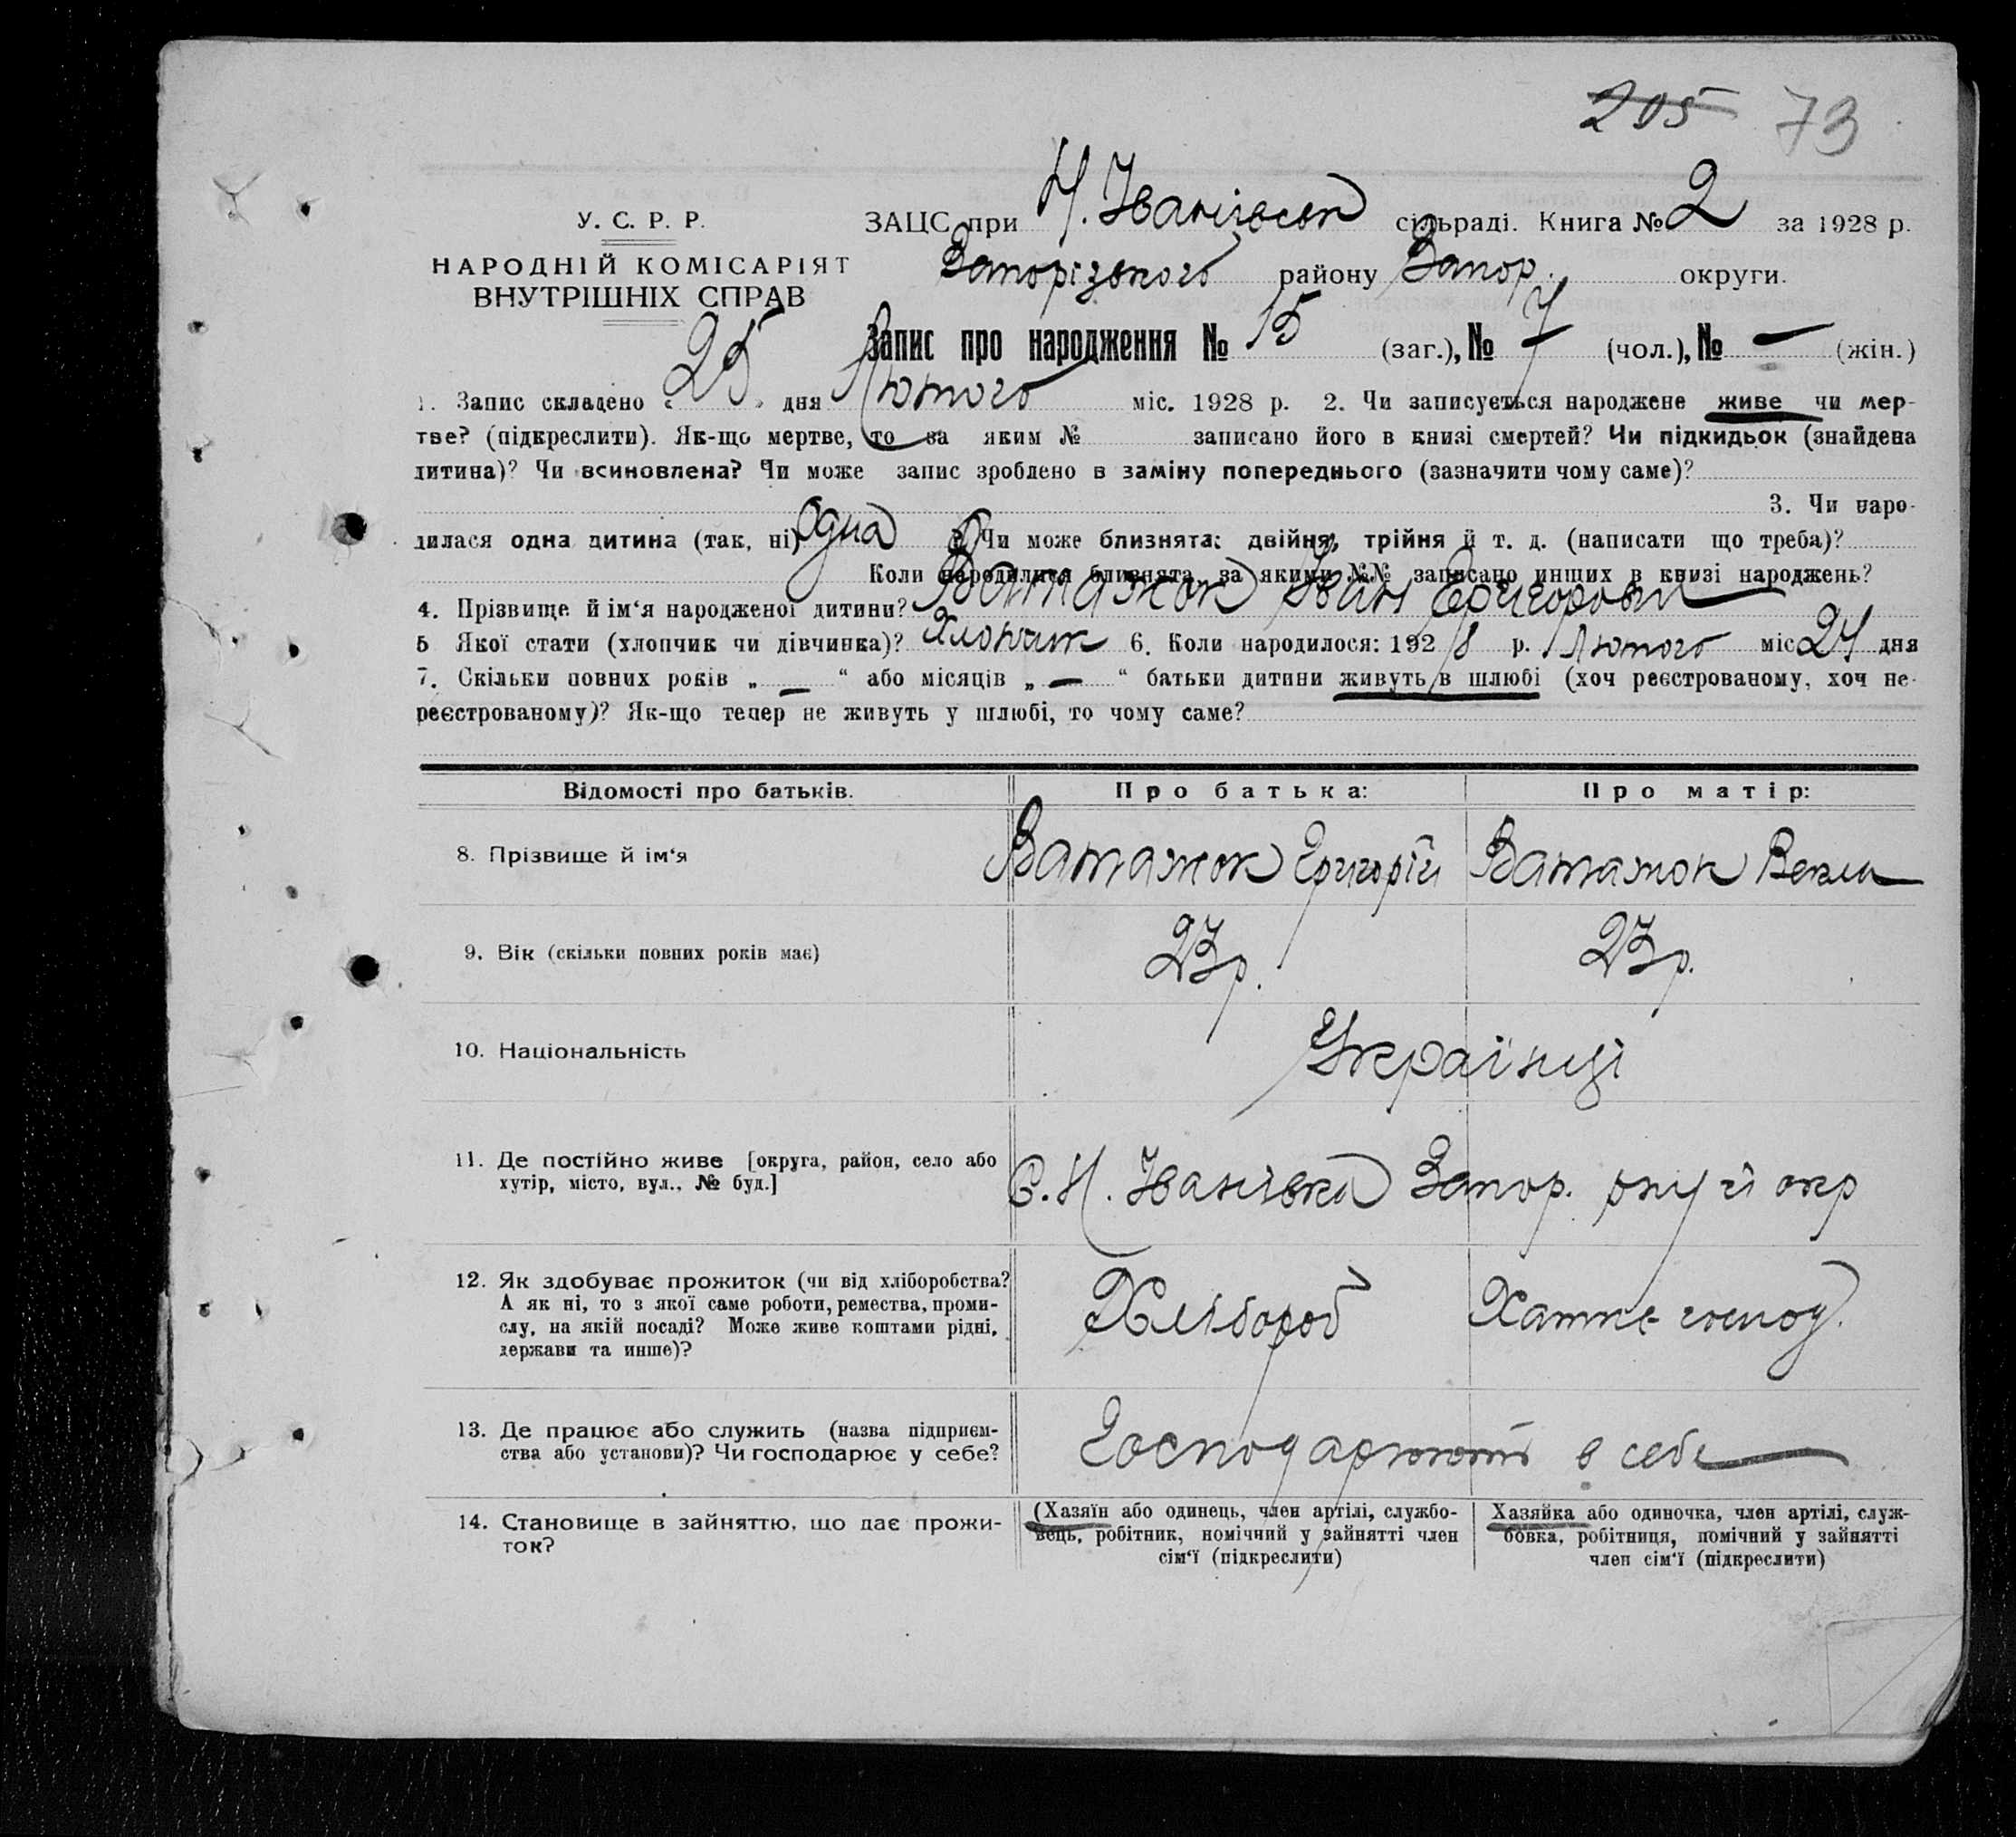 205 73
У. С. Р. Р.
НАРОДНІЙ КОМІСАРІЯТ
ВНУТРІШНІХ СПРАВ
ЗАЦС при Н. Іванівськ сільраді. Книга № 2 за 1928 р.
Запорізького району Запор. округи.
Запис про народження № 15 (заг.), № 7 (чол.), № — (жін.)
1. Запис складено „ 25 " дня Лютого міс. 1928 р. 2. Чи записується народжене живе чи мер-
тве? (підкреслити). Як-що мертве, то за яким № записано його в книзі смертей? Чи підкидьок (знайдена
дитина)? Чи всиновлена? Чи може запис зроблено в заміну попереднього (зазначити чому саме)?
3. Чи наро-
дилася одна дитина (так, ні) Одна Чи може близнята: двійня, трійня й т. д. (написати що треба)?
Коли народилися близнята, за якими №№ записано инших в книзі народжень?
4. Прізвище й ім‘я народженої дитини? Ватажок Іван Григоров
5 Якої стати (хлопчик чи дівчинка)? Хлопчик 6. Коли народилося: 1928 р. Лютого міс 24 дня
7. Скільки повних років „ — “ або місяців „ — “ батьки дитини живуть в шлюбі (хоч реєстрованому, хоч не-
реєстрованому)? Як-що тепер не живуть у шлюбі, то чому саме?
Відомості про батьків. Про батька: Про матір:
8. Прізвище й ім‘я Ватажок Григорій Ватажок Векла
9. Вік (скільки повних років має) 23 р. 23 р.
10. Національність Українці
11. Де постійно живе [округа, район, село або
хутір, місто, вул., № буд.] С. Н. Іванівка Запор. рну й окр
12. Як здобуває прожиток (чи від хліборобства?
А як ні, то з якої саме роботи, ремества, проми-
слу, на якій посаді? Може живе коштами рідні,
держави та инше)? Хлібороб Хатнє господ.
13. Де працює або служить (назва підприєм-
ства або установи)? Чи господарює у себе? Господарюють в себе
14. Становище в зайняттю, що дає прожи-
ток?
(Хазяїн або одинець, член артілі, службо-
вець, робітник, помічний у зайнятті член
сім‘ї (підкреслити)
Хазяйка або одиночка, член артілі, служ-
бовка, робітниця, помічний у зайнятті
член сім‘ї (підкреслити)